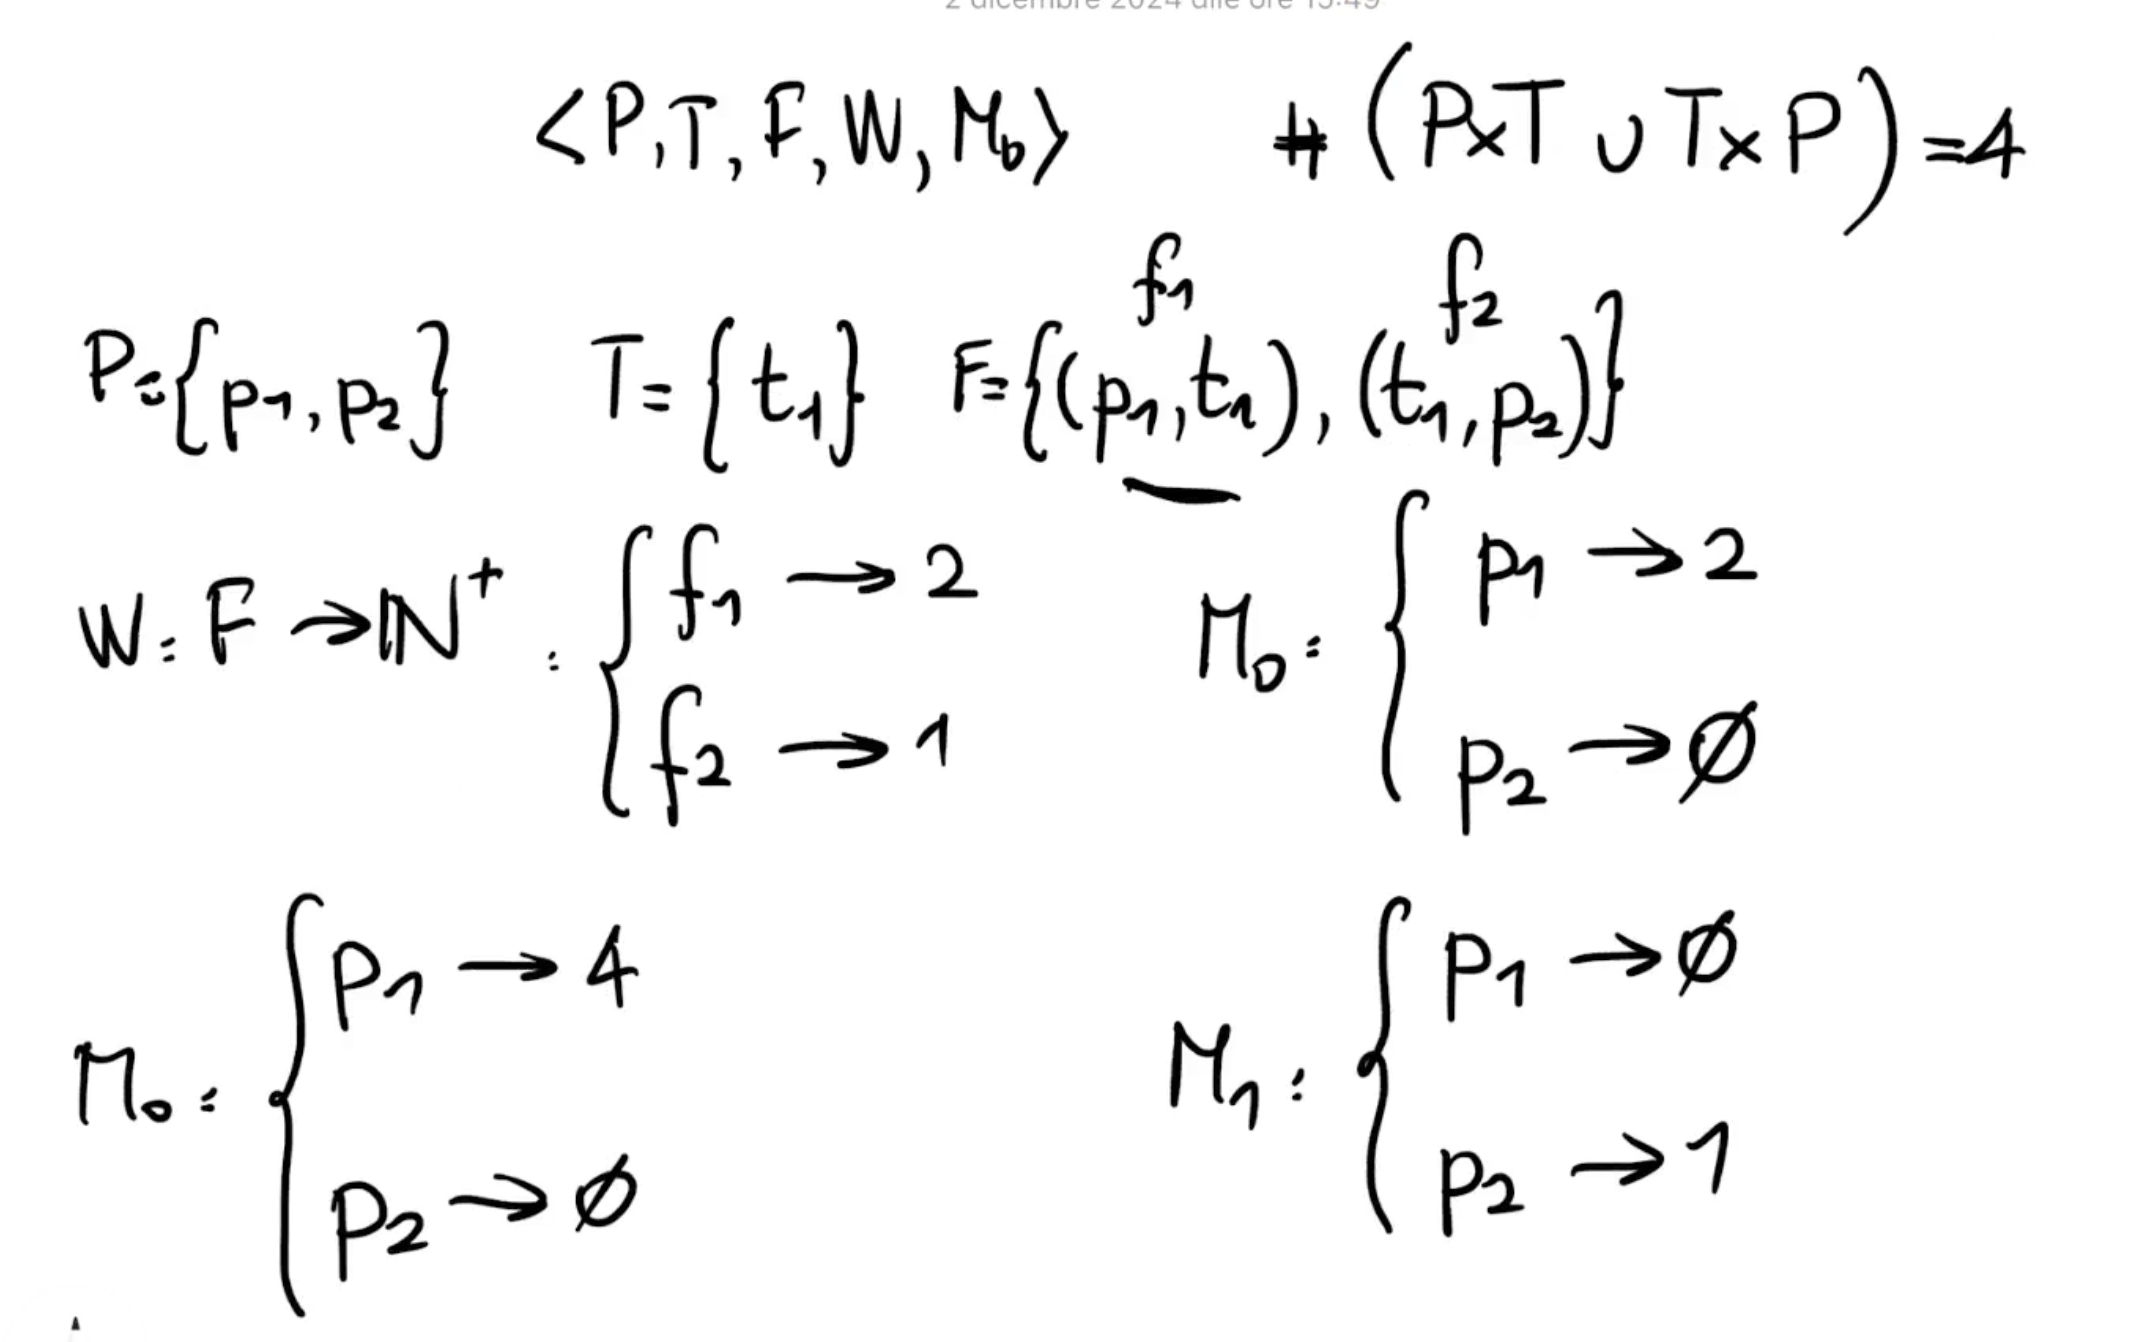 2 dicembre 2024 alle ore 15:49
<P, T, F, W, M₀> # (P×T ∪ T×P) = 4
f₁ f₂
P = {p₁, p₂} T = {t₁} F = {(p₁, t₁), (t₁, p₂)}
W: F → ℕ⁺ : { f₁ → 2
f₂ → 1
M₀ : { p₁ → 2
p₂ → ∅
M₀ : { p₁ → 4
p₂ → ∅
M₁ : { p₁ → ∅
p₂ → 1